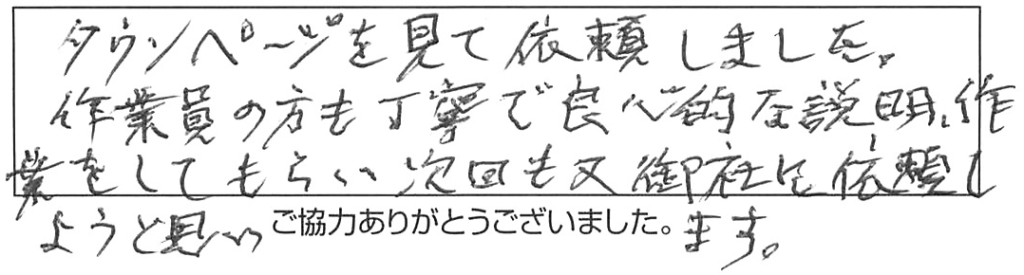 タウンページを見て依頼しました。
作業員の方も丁寧で良心的な説明、作
業をしてもらい次回も又御社に依頼し
ようと思い ご協力ありがとうございました。 ます。